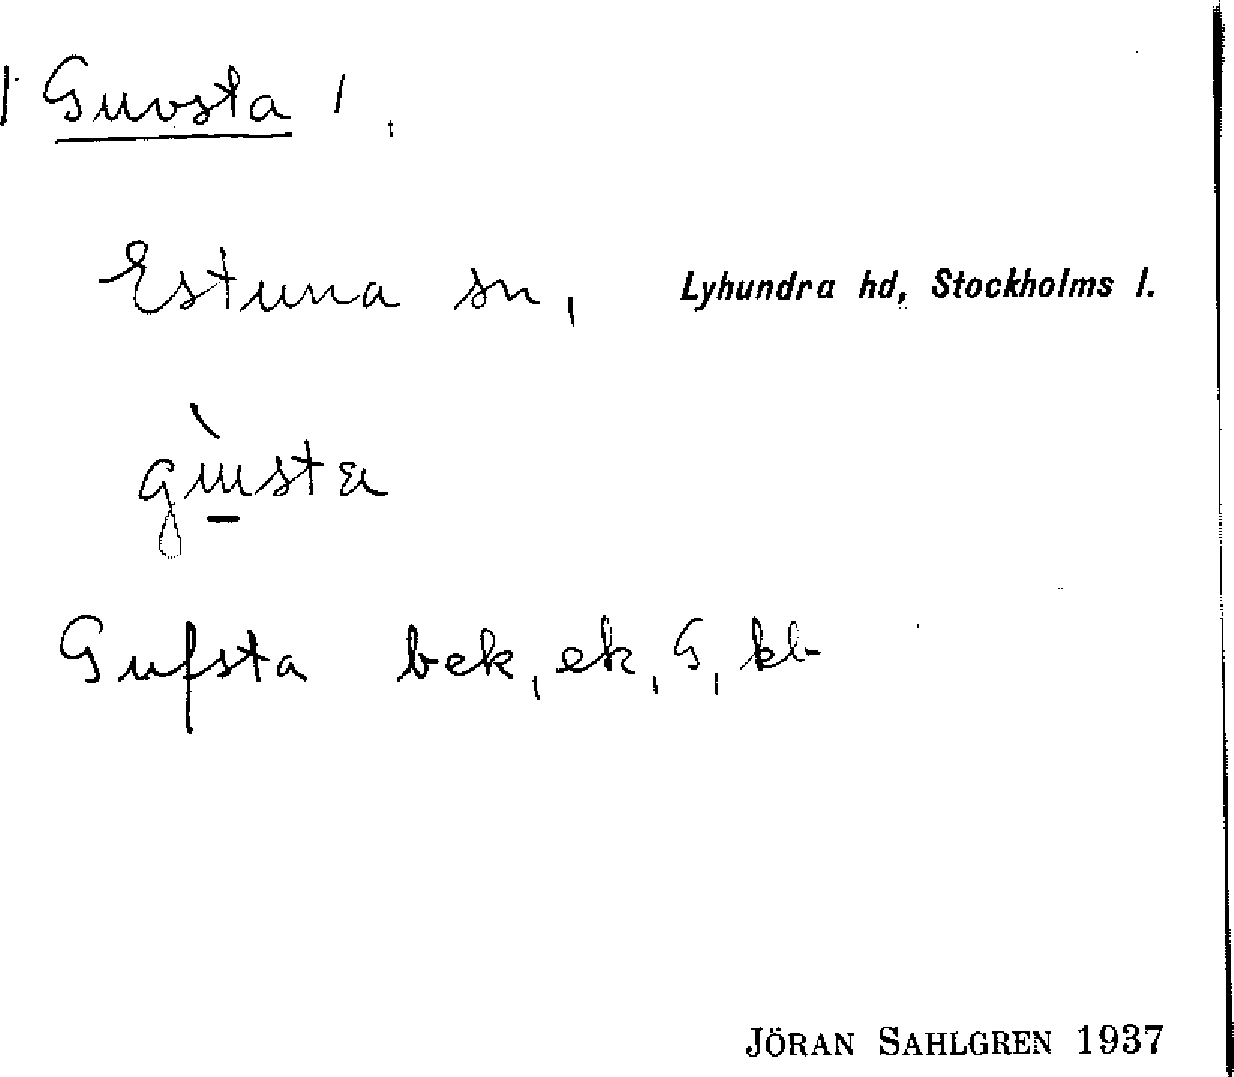 / Guvsta /,
Estuna sn, Lyhundra hd, Stockholms l.
gùsta
Gufsta bek, ek, G, kb
JÖRAN SAHLGREN 1937